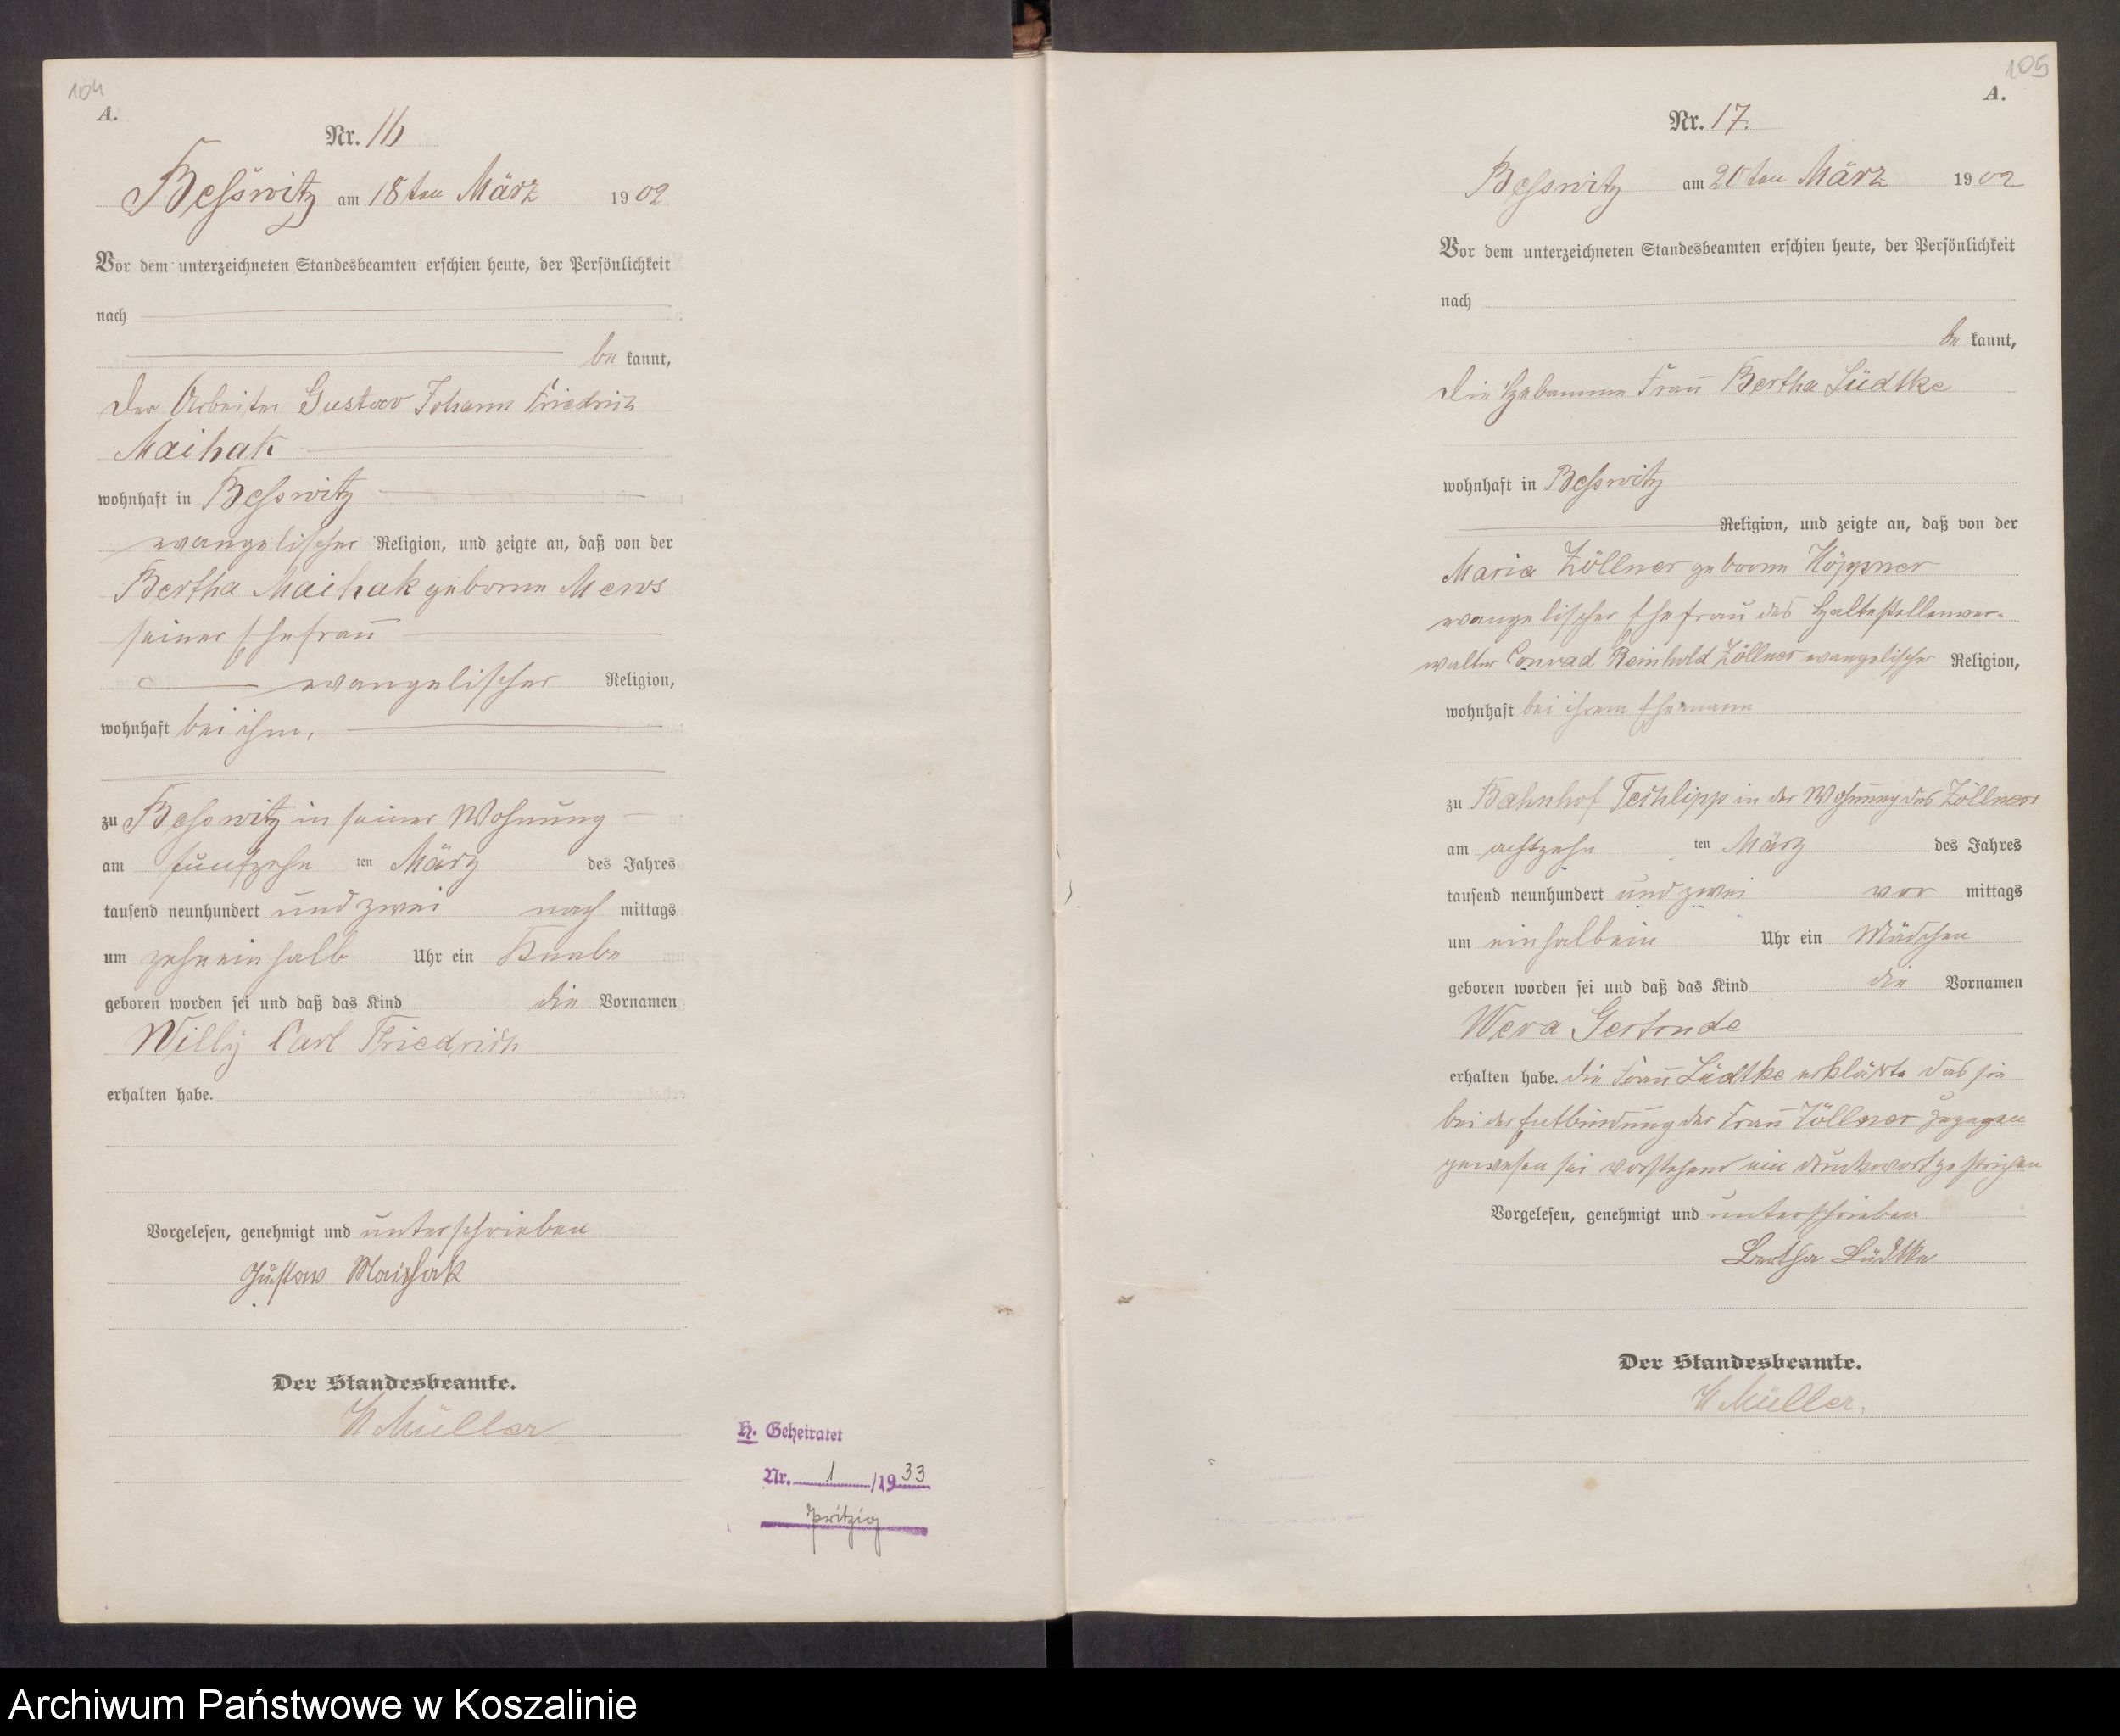 104
A.
Nr. 16
Besswitz am 18ten März 1902
Vor dem unterzeichneten Standesbeamten erschien heute, der Persönlichkeit
nach
be kannt,
der Arbeiter Gustav Johann Friedrich
Maihak
wohnhaft in Besswitz
evangelischer Religion, und zeigte an, daß von der
Bertha Maihak geborene Mews
seiner Ehefrau
evangelischer Religion,
wohnhaft bei ihm,
zu Besswitz in seiner Wohnung
am fünfzehn ten März des Jahres
tausend neunhundert und zwei nach mittags
um zehneinhalb Uhr ein Knabe
geboren worden sei und daß das Kind die Vornamen
Willy Carl Friedrich
erhalten habe.
Vorgelesen, genehmigt und unterschrieben
Gustav Maihak
Der Standesbeamte.
Müller
H. Geheiratet
Nr. 1 /1933
Pritzig
105
A.
Nr. 17.
Besswitz am 20ten März 1902
Vor dem unterzeichneten Standesbeamten erschien heute, der Persönlichkeit
nach
be kannt,
die Hebamme Frau Bertha Lüdtke
wohnhaft in Besswitz
Religion, und zeigte an, daß von der
Maria Zöllner geborne Höppner
evangelischer Ehefrau des Haltestellenver-
walter Conrad Reinhold Zöllner evangelischer Religion,
wohnhaft bei ihrem Ehemann
zu Bahnhof Techlipp in der Wohnung des Zöllners
am achtzehn ten März des Jahres
tausend neunhundert und zwei vor mittags
um einhalbein Uhr ein Mädchen
geboren worden sei und daß das Kind die Vornamen
Wera Gertrude
erhalten habe. die Frau Lüdtke erklärte das sie
bei der Entbindung der Frau Zöllner zugegen
gewesen sei vorstehend ein Druckwort gestrichen
Vorgelesen, genehmigt und unterschrieben
Bertha Lüdtke
Der Standesbeamte.
Müller.
Archiwum Państwowe w Koszalinie